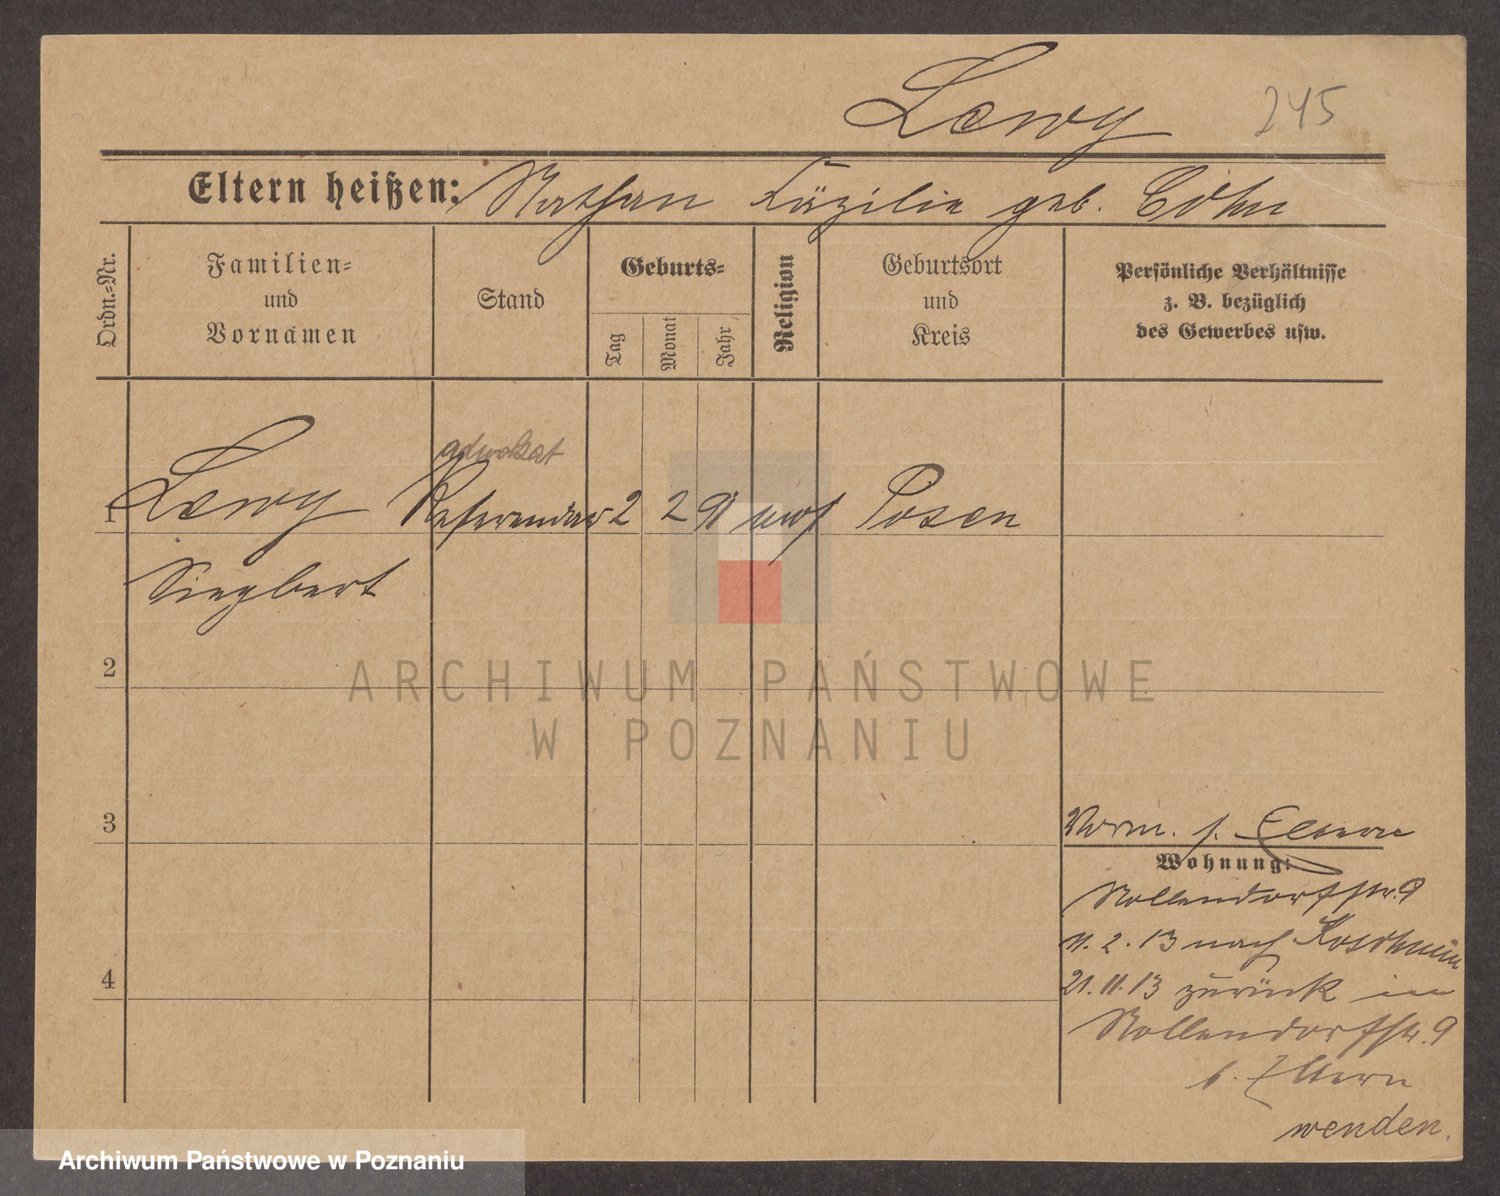 Lewy 245
Eltern heißen: Nathan Käzilie geb. Cohn
Ordn.-Nr.
Familien-
und
Vornamen
Stand
Geburts-
Tag
Monat
Jahr
Religion
Geburtsort
und
Kreis
Persönliche Verhältnisse
z. B. bezüglich
des Gewerbes usw.
adwokat
1 Lewy Referendar 2 2 91 mos Posen
Siegbert
2
3
4
Vorm. s. Eltern
Wohnung:
Nollendorfstr. 9
11. 2. 13 nach Koschmin
21. 11. 13 zurück in
Nollendorfstr. 9
b. Eltern
wenden.
ARCHIWUM PAŃSTWOWE
W POZNANIU
Archiwum Państwowe w Poznaniu